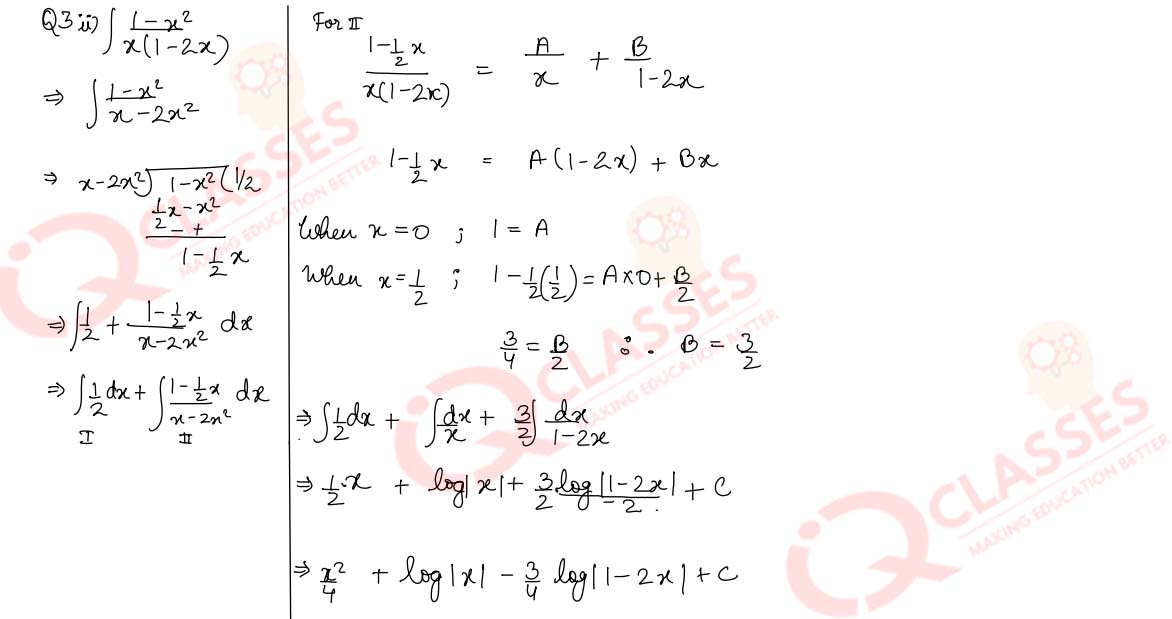 Q3 ii) ∫ (1-x²)/(x(1-2x))
⇒ ∫ (1-x²)/(x-2x²)
⇒ x-2x²) 1-x² (1/2
1/2 x - x²
- +
1 - 1/2 x
⇒ ∫ 1/2 + (1 - 1/2 x)/(x-2x²) dx
⇒ ∫ 1/2 dx + ∫ (1 - 1/2 x)/(x-2x²) dx
I II
For II
(1 - 1/2 x)/(x(1-2x)) = A/x + B/(1-2x)
1 - 1/2 x = A(1-2x) + Bx
When x = 0 ; 1 = A
When x = 1/2 ; 1 - 1/2(1/2) = A×0 + B/2
3/4 = B/2 ∴ B = 3/2
⇒ ∫ 1/2 dx + ∫ dx/x + 3/2 ∫ dx/(1-2x)
⇒ 1/2 . x + log|x| + 3/2 . log|1-2x|/-2 + C
⇒ x²/4 + log|x| - 3/4 log|1-2x| + C
CLASSES
MAKING EDUCATION BETTER
CLASSES
MAKING EDUCATION BETTER
CLASSES
MAKING EDUCATION BETTER